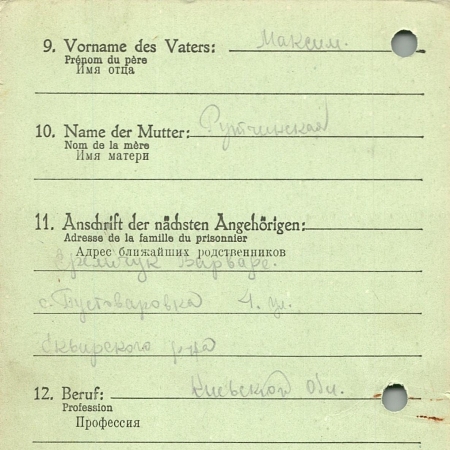 9. Vorname des Vaters: Максим.
Prénom du père
Имя отца
10. Name der Mutter:
Nom de la mère
Имя матери
11. Anschrift der nächsten Angehörigen:
Adresse de la famille du prisonnier
Адрес ближайших родственников
Варваре.
с. Пустоваровка
Сквирского р-на
12. Beruf: Киевской обл.
Profession
Профессия